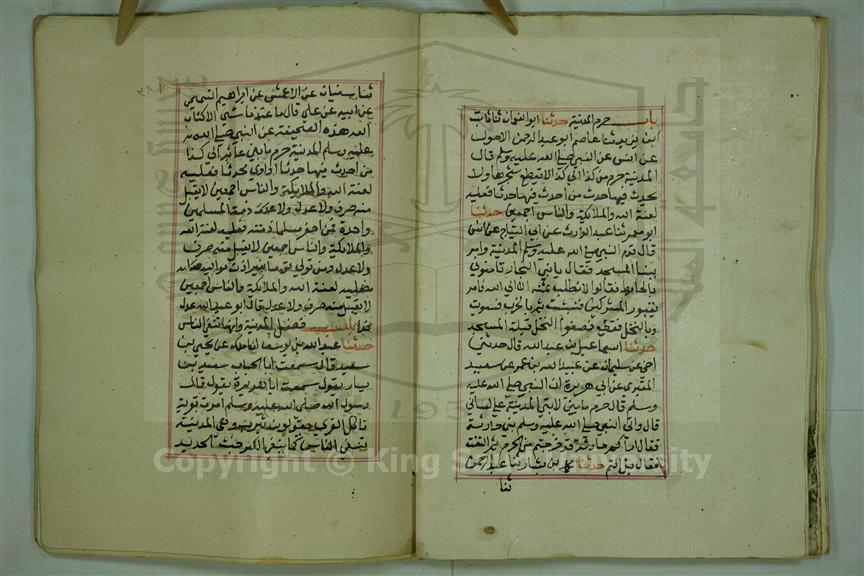 باب حرم المدينة حدثنا ابو النعمان ثنا ثابت
ابن يزيد ثنا عاصم ابو عبد الرحمن الاحول
عن انس عن النبي صلى الله عليه وسلم قال
المدينة حرم من كذا الى كذا لا يقطع شجرها ولا
يحدث فيها حدث من احدث فيها حدثا فعليه
لعنة الله والملائكة والناس اجمعين حدثنا
ابو معمر ثنا عبد الوارث عن ابي التياح عن انس
قال قدم النبي صلى الله عليه وسلم المدينة وامر
ببنا المسجد فقال يا بني النجار ثامنوني
فقالوا لا نطلب ثمنه الا الى الله فامر
بقبور المشركين فنبشت ثم بالخرب فسويت
وبالنخل فقطع فصفوا النخل قبلة المسجد
حدثنا اسماعيل بن عبد الله قال حدثني
اخي عن سليمان عن عبيد الله بن عمر عن سعيد
المقبري عن ابي هريرة ان النبي صلى الله عليه
وسلم قال حرم ما بين لابتي المدينة على لساني
قال واتى النبي صلى الله عليه وسلم بني حارثة
فقال اراكم يا بني حارثة قد خرجتم من الحرم ثم التفت
فقال بل انتم حدثنا محمد بن بشار ثنا عبد الرحمن
ثنا
ثنا سفيان عن الاعمش عن ابراهيم التيمي
عن ابيه عن علي قال ما عندنا شي الا كتاب
الله هذه الصحيفة عن النبي صلى الله
عليه وسلم المدينة حرم ما بين عائر الى كذا
من احدث فيها حدثا او اوى محدثا فعليه
لعنة الله والملائكة والناس اجمعين لا يقبل
منه صرف ولا عدل وقال ذمة المسلمين
واحدة فمن اخفر مسلما ذمته فعليه لعنة الله
والملائكة والناس اجمعين لا يقبل منه صرف
ولا عدل ومن تولى قوما بغير اذن مواليه
فعليه لعنة الله والملائكة والناس اجمعين
لا يقبل منه صرف ولا عدل قال ابو عبد الله عدل
فدا باب فضل المدينة وانها تنفي الناس
حدثنا عبد الله بن يوسف انا مالك عن يحيى بن
سعيد قال سمعت ابا الحباب سعيد بن
يسار يقول سمعت ابا هريرة يقول قال
رسول الله صلى الله عليه وسلم امرت بقرية
تاكل القرى يقولون يثرب وهي المدينة
تنفي الناس كما ينفي الكير خبث الحديد
Copyright © King Saud University
1957